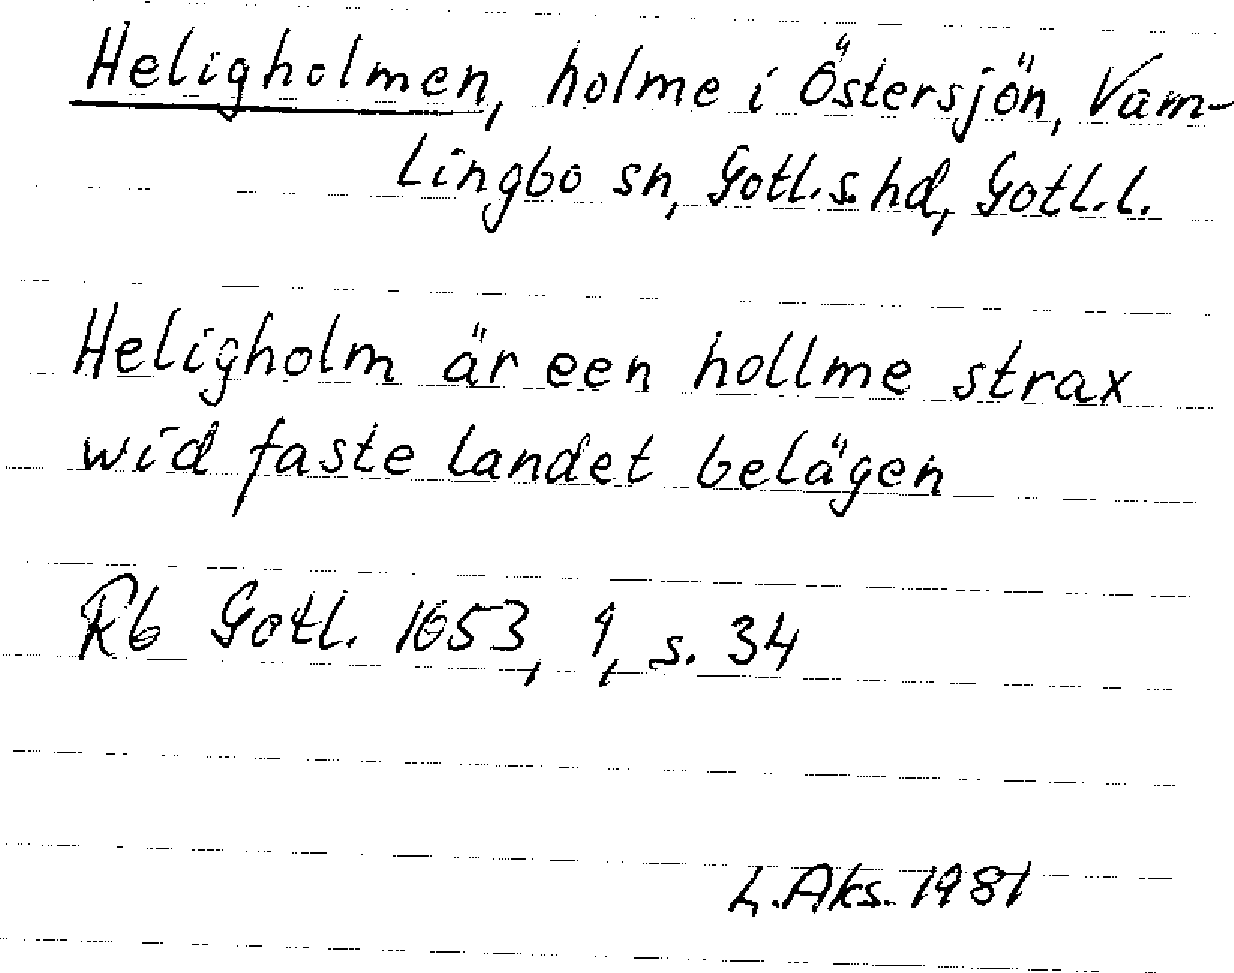 Heligholmen, holme i Östersjön, Vam-
lingbo sn, Gotl. s. hd, Gotl. l.
Heligholm är een hollme strax
wid faste landet belägen
Rb Gotl. 1653, 1, s. 34
L. Aks. 1981